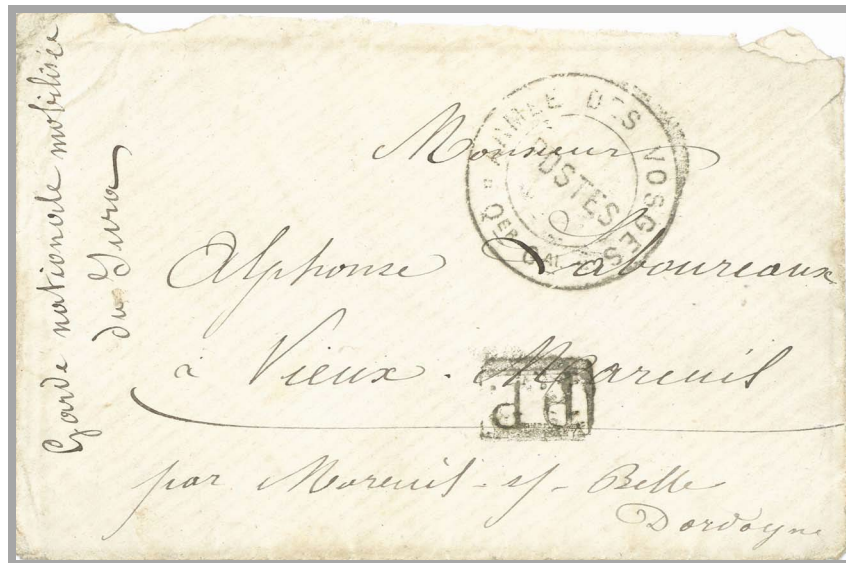 Garde nationale mobilisée
du Jura
ARMÉE DES VOSGES
POSTES
QER GAL
Monsieur
Alphonse Laboureaux
à Vieux-Mareuil
PP
par Mareuil-s/-Belle
Dordogne